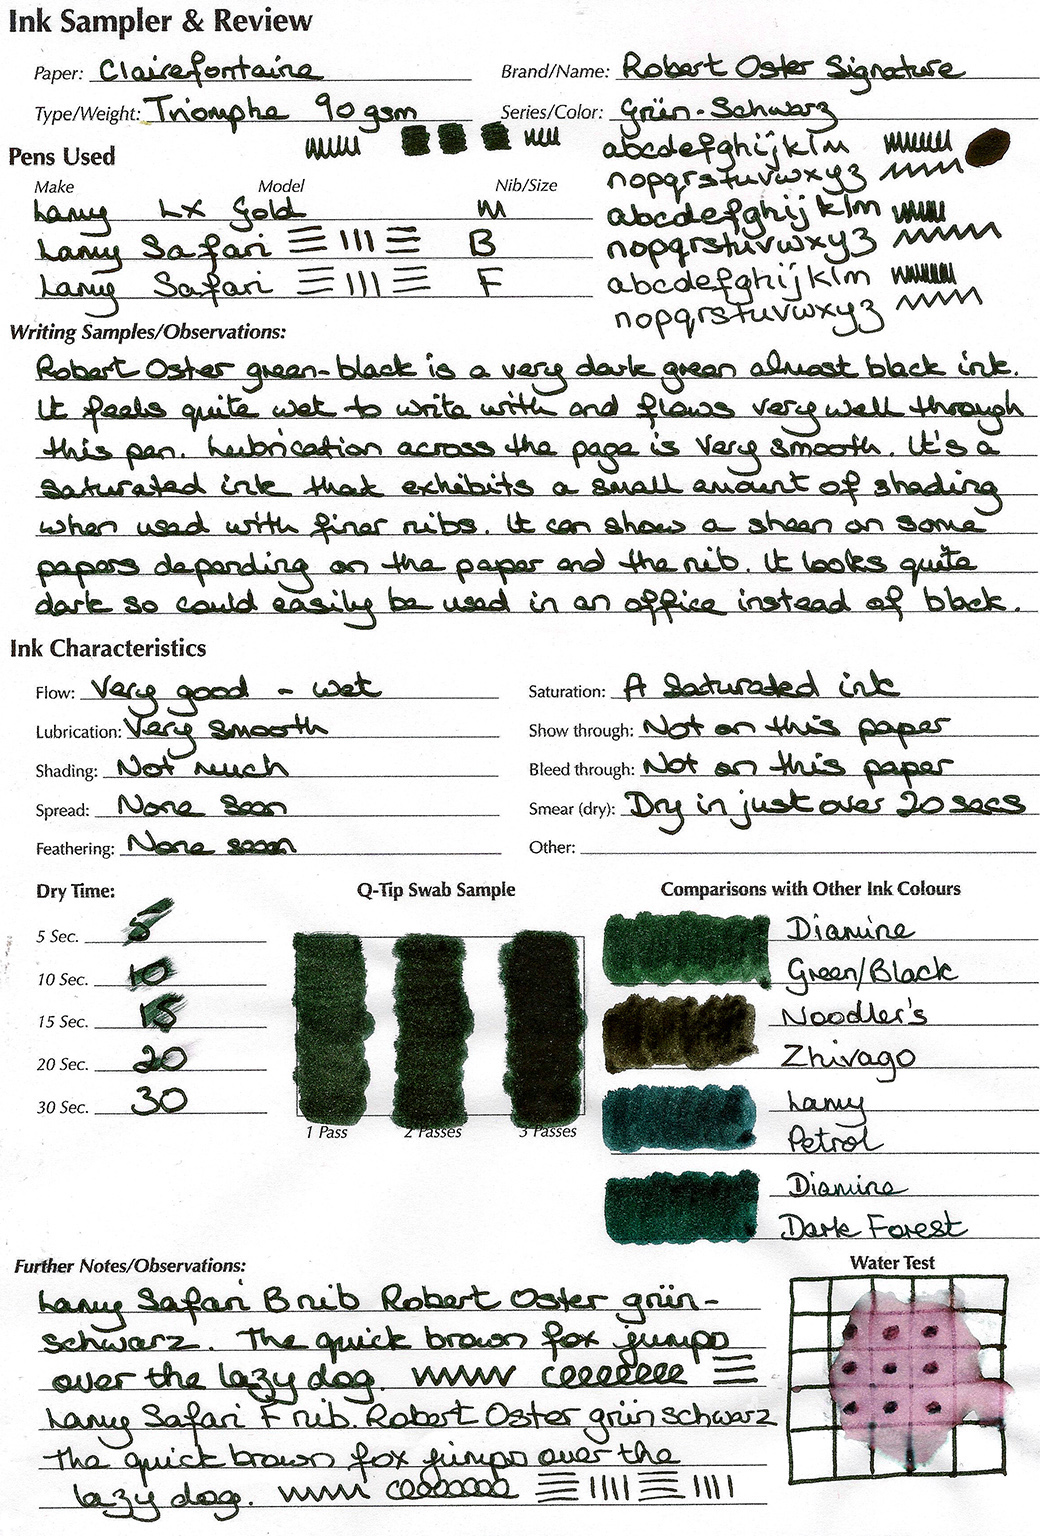 Ink Sampler & Review
Paper: Clairefontaine
Brand/Name: Robert Oster Signature
Type/Weight: Triomphe 90gsm
Series/Color: Grün-Schwarz
abcdefghijklm
nopqrstuvwxyz
abcdefghijklm
nopqrstuvwxyz
abcdefghijklm
nopqrstuvwxyz
Pens Used
Make Model Nib/Size
Lamy LX Gold M
Lamy Safari B
Lamy Safari F
Writing Samples/Observations:
Robert Oster green-black is a very dark green almost black ink.
It feels quite wet to write with and flows very well through
this pen. Lubrication across the page is very smooth. It's a
saturated ink that exhibits a small amount of shading
when used with finer nibs. It can show a sheen on some
papers depending on the paper and the nib. It looks quite
dark so could easily be used in an office instead of black.
Ink Characteristics
Flow: Very good - wet
Saturation: A saturated ink
Lubrication: Very smooth
Show through: Not on this paper
Shading: Not much
Bleed through: Not on this paper
Spread: None seen
Smear (dry): Dry in just over 20 secs
Feathering: None seen
Other:
Dry Time:
5 Sec. 5
10 Sec. 10
15 Sec. 15
20 Sec. 20
30 Sec. 30
Q-Tip Swab Sample
1 Pass 2 Passes 3 Passes
Comparisons with Other Ink Colours
Diamine
Green/Black
Noodler's
Zhivago
Lamy
Petrol
Diamine
Dark Forest
Further Notes/Observations:
Lamy Safari B nib Robert Oster grün-
schwarz. The quick brown fox jumps
over the lazy dog.
Lamy Safari F nib. Robert Oster grün schwarz
The quick brown fox jumps over the
lazy dog.
Water Test